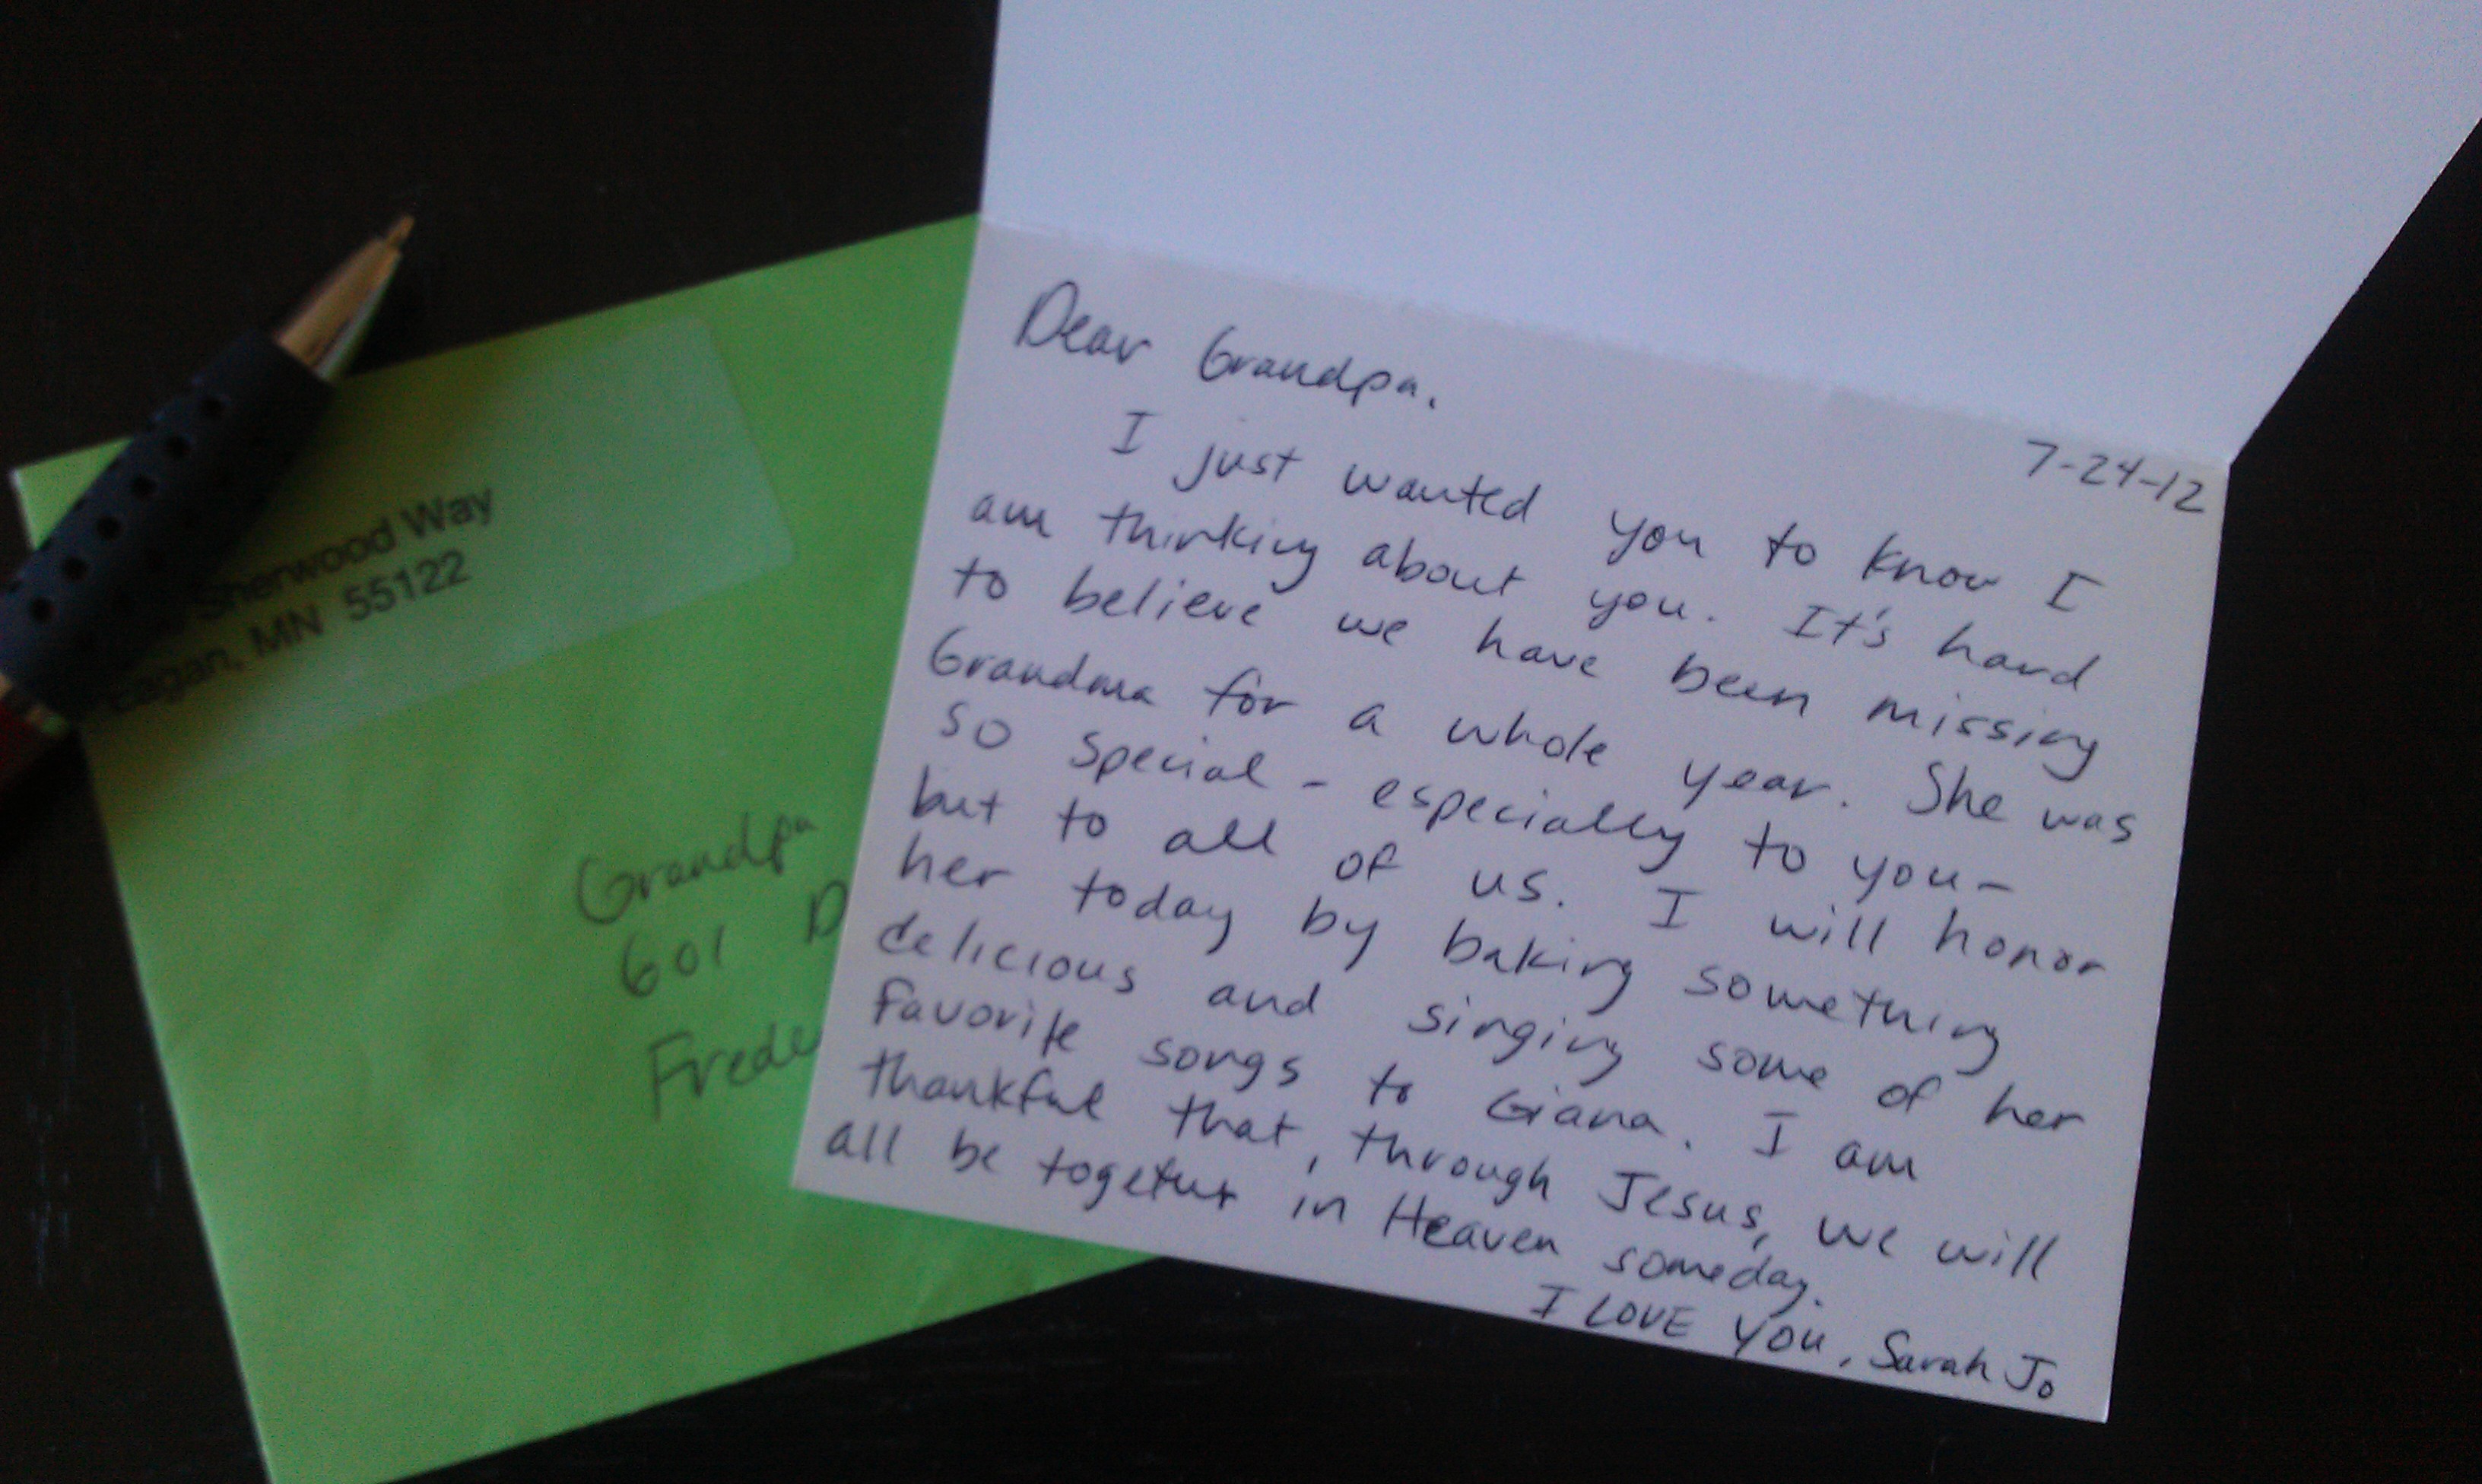 Sherwood Way
Eagan, MN 55122
Grandpa
601 D
Frede
7-24-12
Dear Grandpa,
I just wanted you to know I
am thinking about you. It's hard
to believe we have been missing
Grandma for a whole year. She was
so special - especially to you -
but to all of us. I will honor
her today by baking something
delicious and singing some of her
favorite songs to Giana. I am
thankful that, through Jesus, we will
all be together in Heaven someday.
I LOVE YOU, Sarah Jo